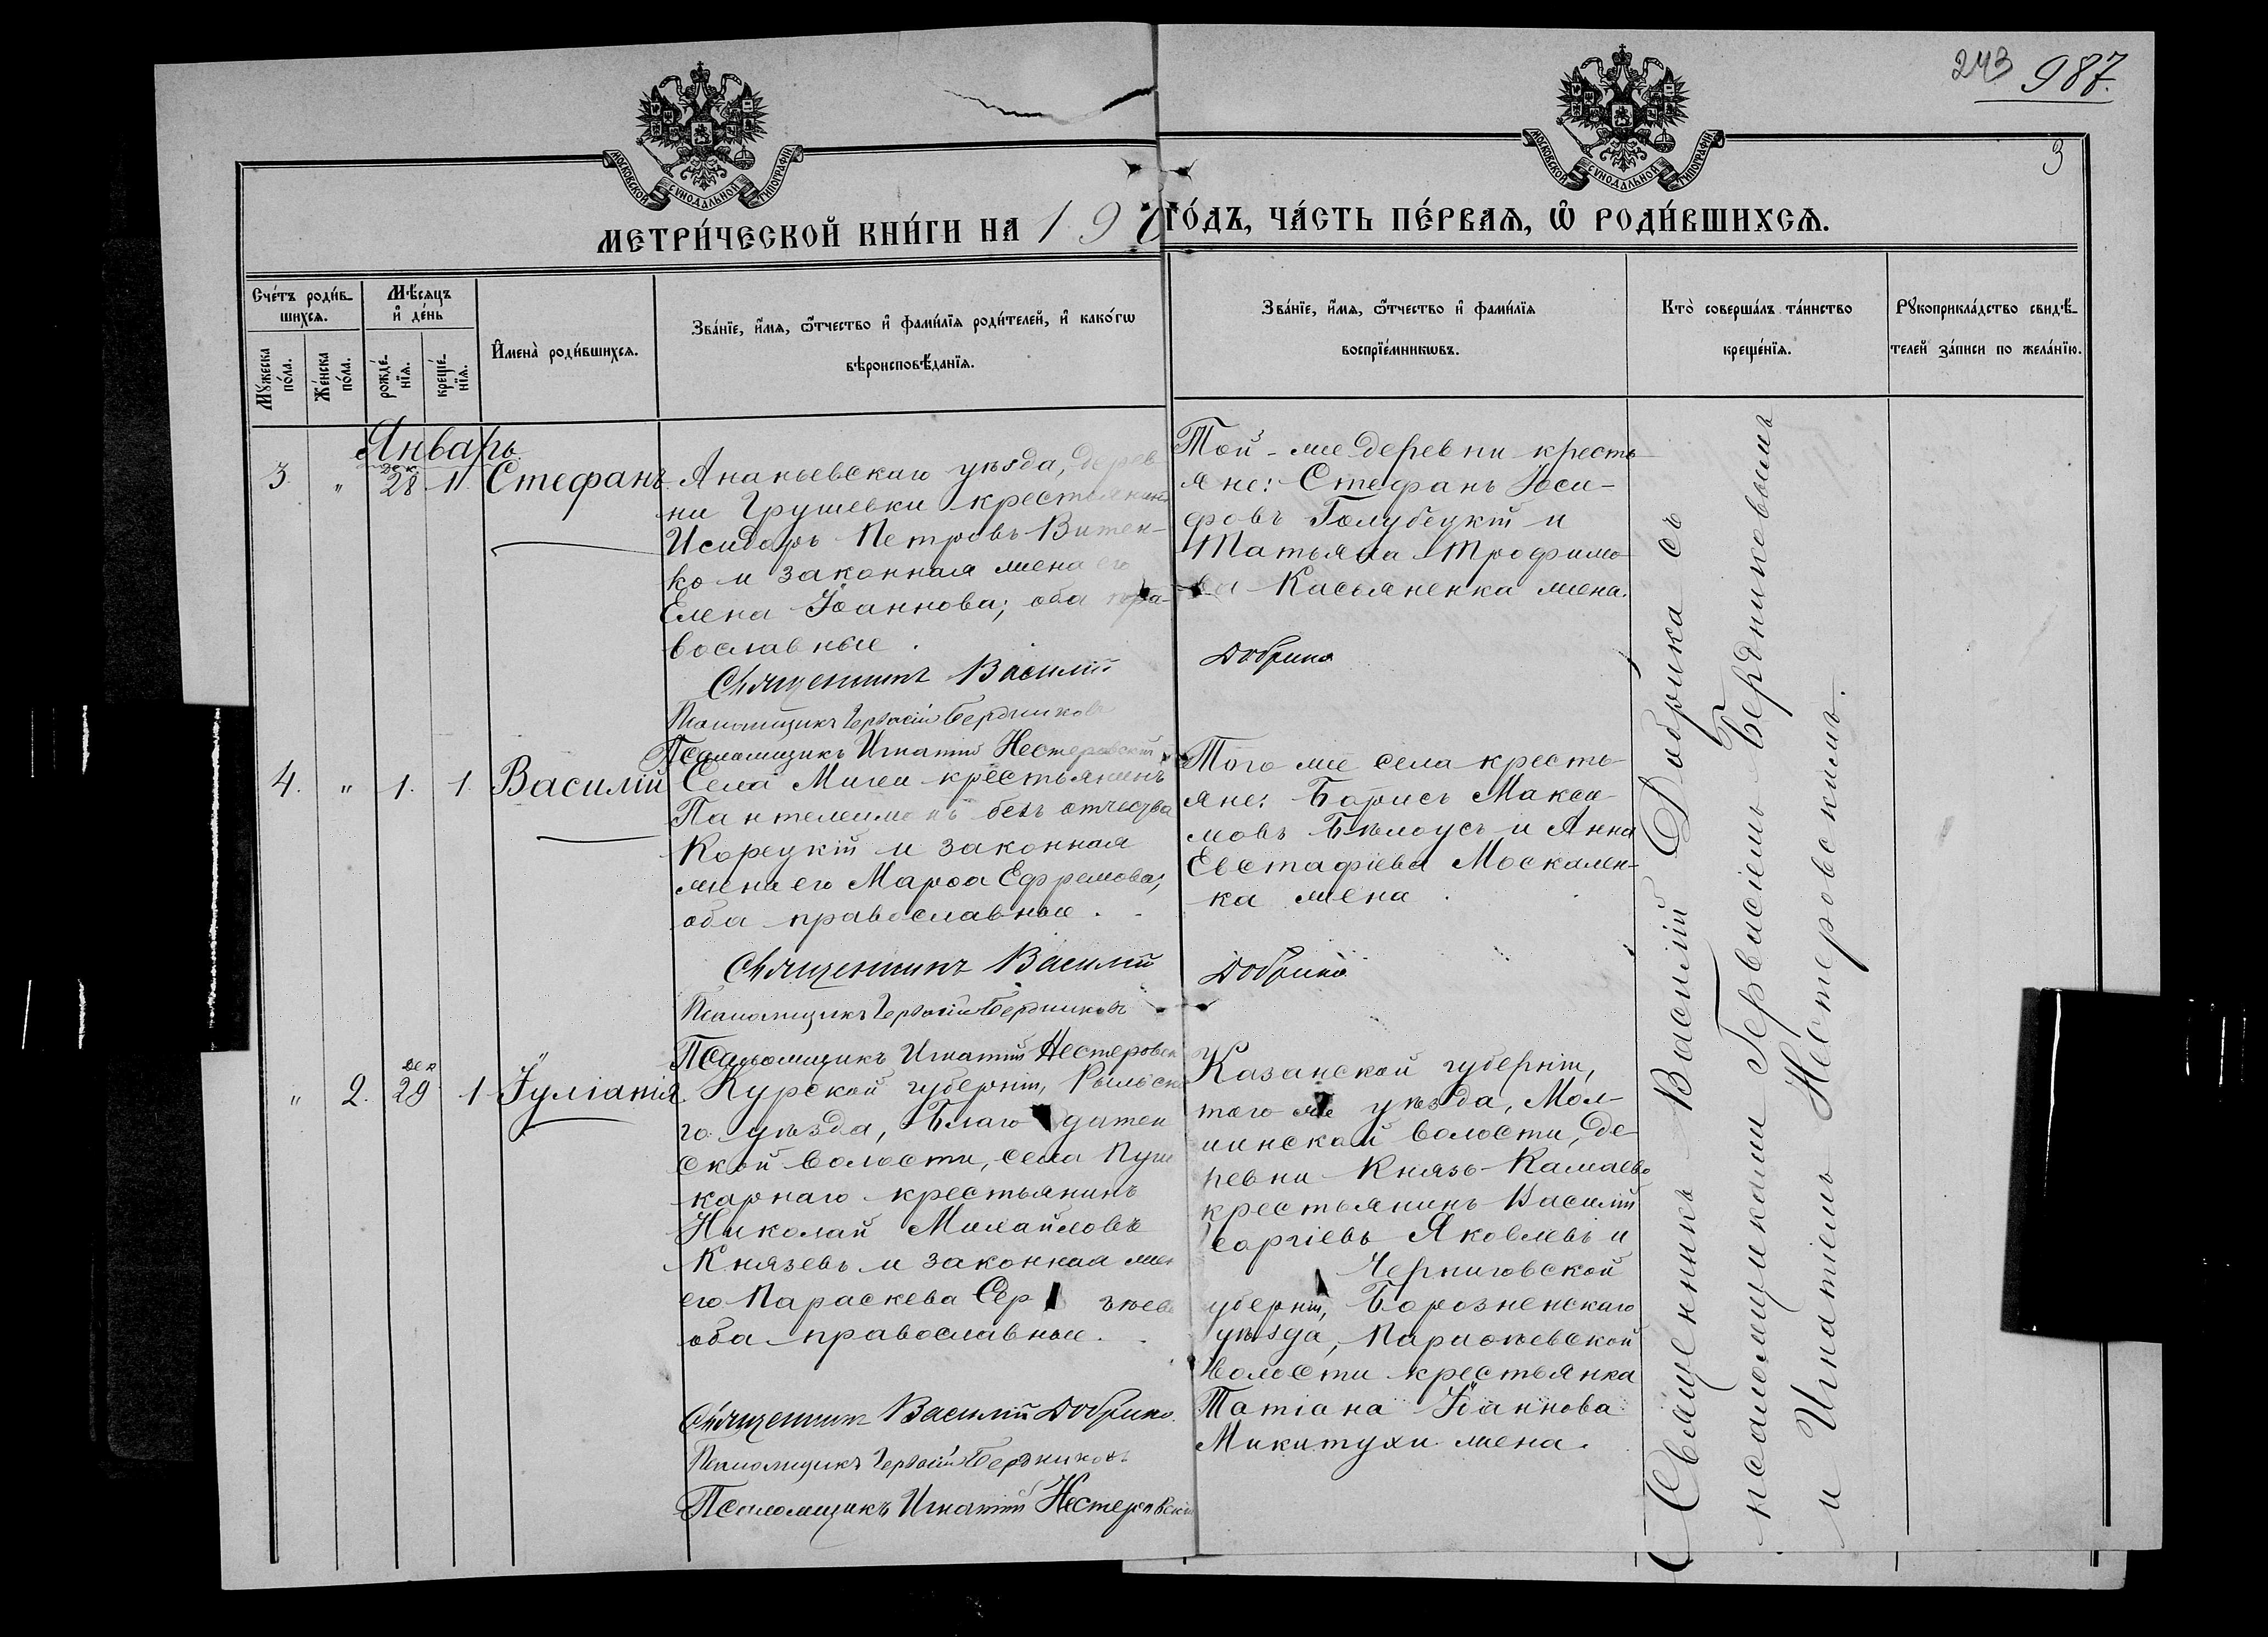 243 987.
3
МОСКОВСКОЙ СѴНОДАЛЬНОЙ ТИПОГРАФІИ
МОСКОВСКОЙ СѴНОДАЛЬНОЙ ТИПОГРАФІИ
МЕТРИ́ЧЕСКОЙ КНИ́ГИ НА 19
ГО́ДЪ, ЧА́СТЬ ПЕ́РВАѦ, Ѡ҆ РОДИ́ВШИХСѦ.
Сче́тъ роди́в-
шихсѧ.
Мꙋ́жеска
по́ла.
Же́нска
по́ла.
Мѣ́сѧцъ
и҆ де́нь
рожде́-
нїѧ.
креще́-
нїѧ.
И҆мена̀ роди́вшихсѧ.
Зва́нїе, и҆́мѧ, ѻ҆́тчество и҆ фами́лїѧ роди́телей, и҆ како́гѡ
вѣроисповѣ́данїѧ.
Зва́нїе, и҆́мѧ, ѻ҆́тчество и҆ фами́лїѧ
воспрїе́мникѡвъ.
Кто̀ соверша́лъ та́инство
креще́нїѧ.
Рꙋкоприкла́дство свидѣ́-
телей за́писи по жела́нїю.
Январь.
3. " Дек. 28 11 Стефанъ.
Ананьевскаго уѣзда, дерев-
ни Грушевки крестьянинъ
Исидоръ Петровъ Витен-
ко и законная жена его
Елена Іоаннова; оба пра-
вославные.
Священникъ Василій
Псаломщикъ Гервасій Бердниковъ
Псаломщикъ Игнатій Нестеровскій
Той-же деревни кресть-
яне: Стефанъ Іоси-
фовъ Голубецкій и
Татьяна Трофимо-
ва Касьяненка жена.
Добрика
4. " 1. 1. Василій
Села Мигеи крестьянинъ
Пантелеимонъ безъ отчества
Корецкій и законная
жена его Марѳа Ефремова,
оба православные.
Священникъ Василій
Псаломщикъ Гервасій Бердниковъ
Псаломщикъ Игнатій Нестеровскій
Того же села кресть-
яне: Борисъ Макси-
мовъ Бѣлоусъ и Анна
Евстафіева Москален-
ка жена.
Добрика
" 2. Дек 29 1 Іуліанія.
Курской губерніи, Рыльска-
го уѣзда, Благодатен
ской волости, села Пуш
карнаго крестьянинъ
Николай Михайловъ
Князевъ и законная жен
его Параскева Сер гѣева
оба православные.
Священникъ Василій Добрика.
Псаломщикъ Гервасій Бердниковъ
Псаломщикъ Игнатій Нестеровскій
Казанской губерніи,
того же уѣзда,
волости, де-
ревни Князь-Камаево
крестьянинъ Василій
Георгіевъ Яковлевъ и
Черниговской
губерніи, Борозненскаго
уѣзда,
волости крестьянка
Татіана Іоаннова
Микитухи жена.
Священникъ Василій Добрика съ
псаломщиками Гервасіемъ Бердниковымъ
и Игнатіемъ Нестеровскимъ.